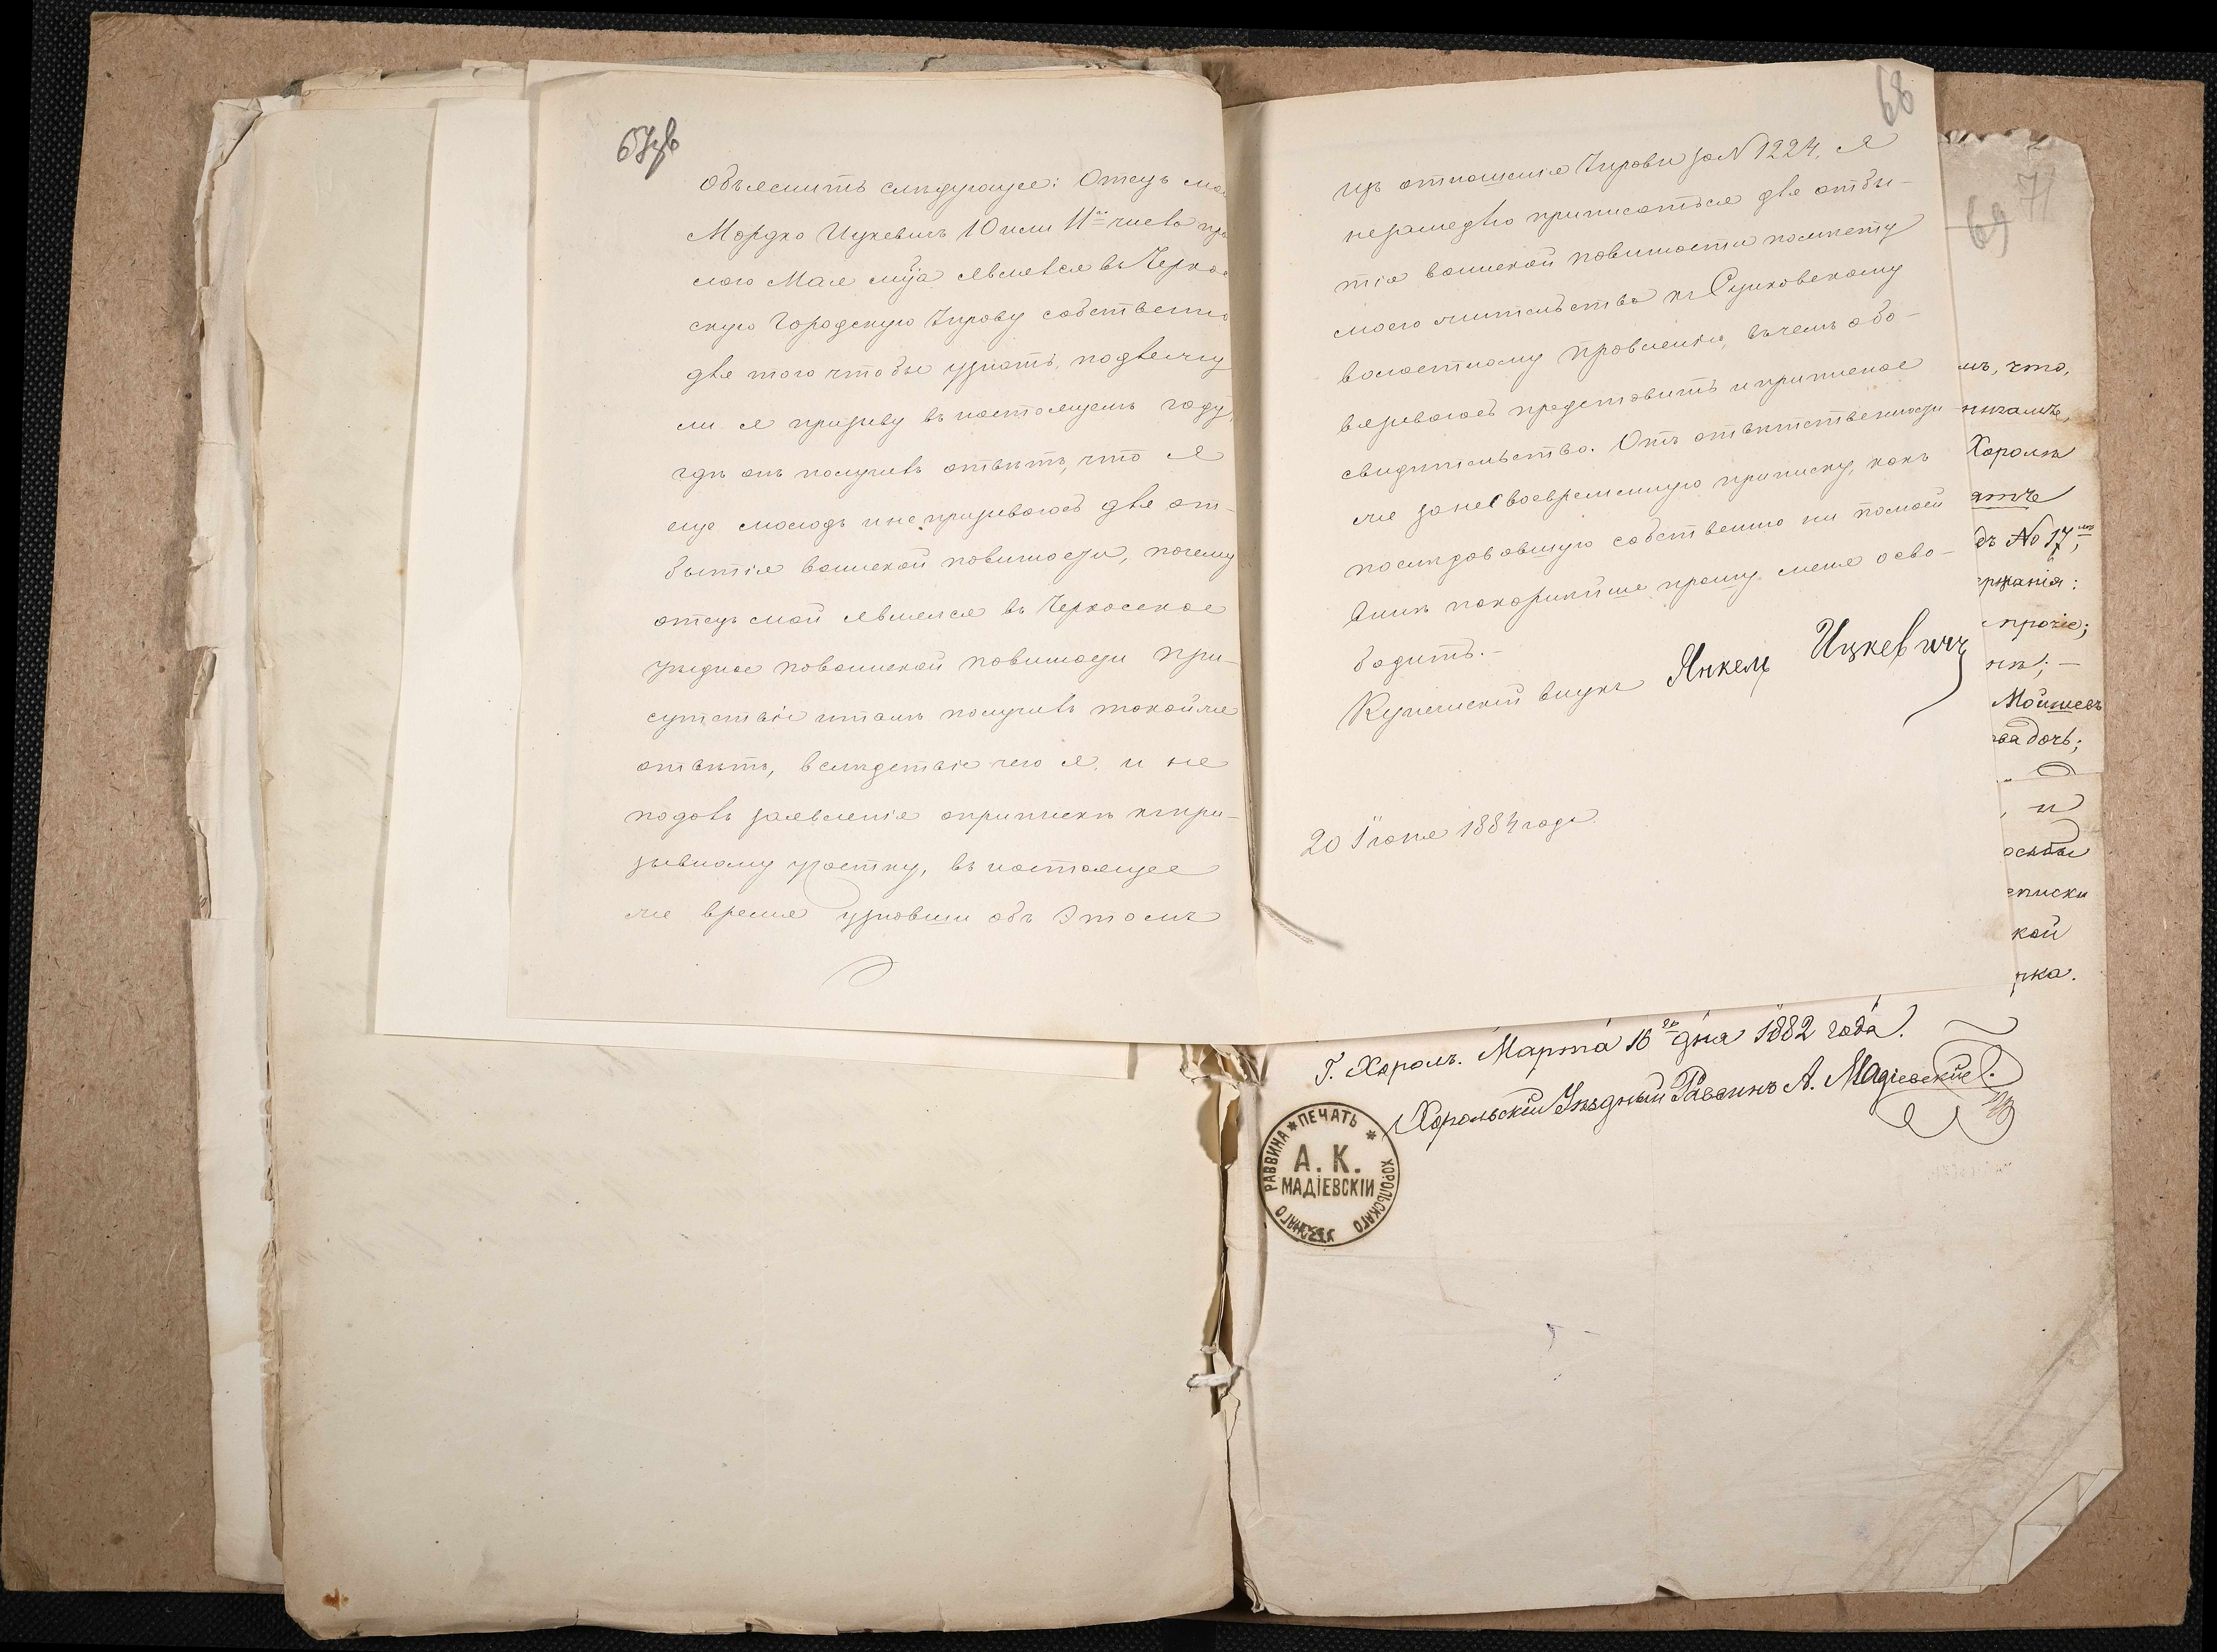 67об
объяснить следующее: Отецъ мо
Мордко Ицкевичъ 10 или 11го числа про
лого Мая м-ца явлелся въ Черкас
скую Городскую Управу собственно
для того чтобы узнать, подлежу
ли я призыву въ настоящемъ году,
гдѣ онъ получивъ отвѣтъ, что я
еще молодъ и не призываюсь для от-
бытія воинской повиности, почему
отецъ мой явлелся въ Черкасское
уѣздное повоинской повиности при-
сутствіе итамъ получивъ такойже
отвѣтъ, вслѣдствіе чего я и не
подавъ заявленія оприпискѣ къпри-
зывному участку, въ настоящее
же время узнавши объ этомъ
68
изъ отношенія Управы за N 1224, я
незамедлю приписаться для отбы-
тія воинской повиности помѣсту
моего жительства къ Сунковскому
волостному правленію, вчемъ обо-
вязываюсь представить и приписное
свидѣтельство. Отъ отвѣтственности
же занесвоевременную приписку, какъ
послѣдовавшую собственно ни помоей
винѣ покорнѣйше прошу меня осво-
бодить.-
Купеческій внукъ Янкель Ицкевичъ
20 Іюня 1884 года.
69 71
мъ, что,
Хоролѣ
дъ No 17
ержанія:
прочіе;
Мойшевъ
дочь;
и
еписки
кой
рка.
Г. Хоролъ. Марта 16го дня 1882 года.
Хорольскій Уѣздный Раввинъ А. Мадіевскій.
ПЕЧАТЬ ХОРОЛЬСКАГО УѢЗДНАГО РАВВИНА
А. К.
МАДІЕВСКІЙ